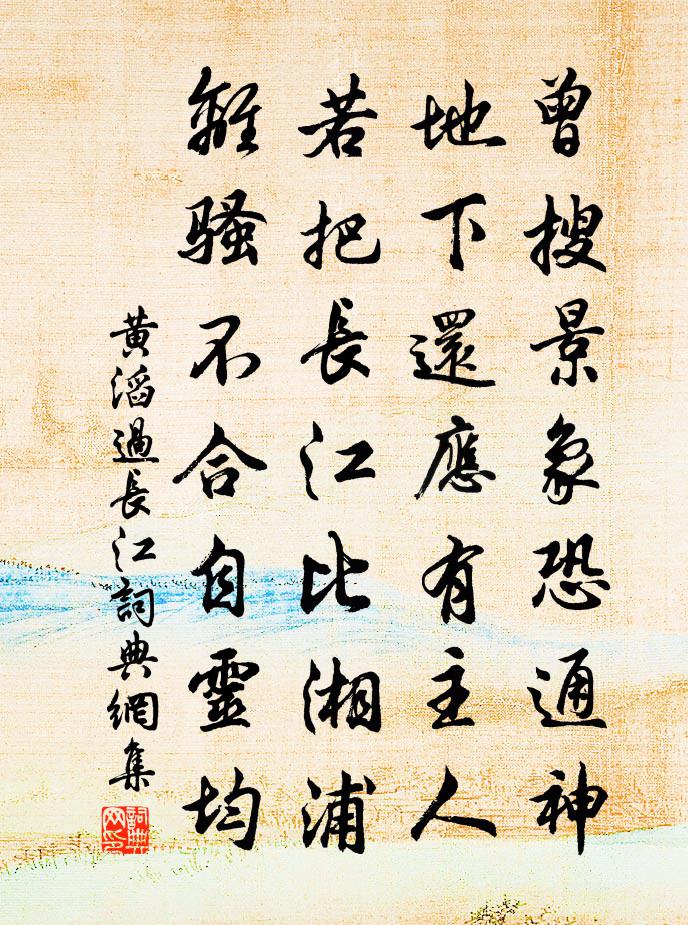 曾搜景象恐通神
地下還應有主人
若把長江比湘浦
離騷不合自靈均
黃滔過長江詞典網集
詞典网印